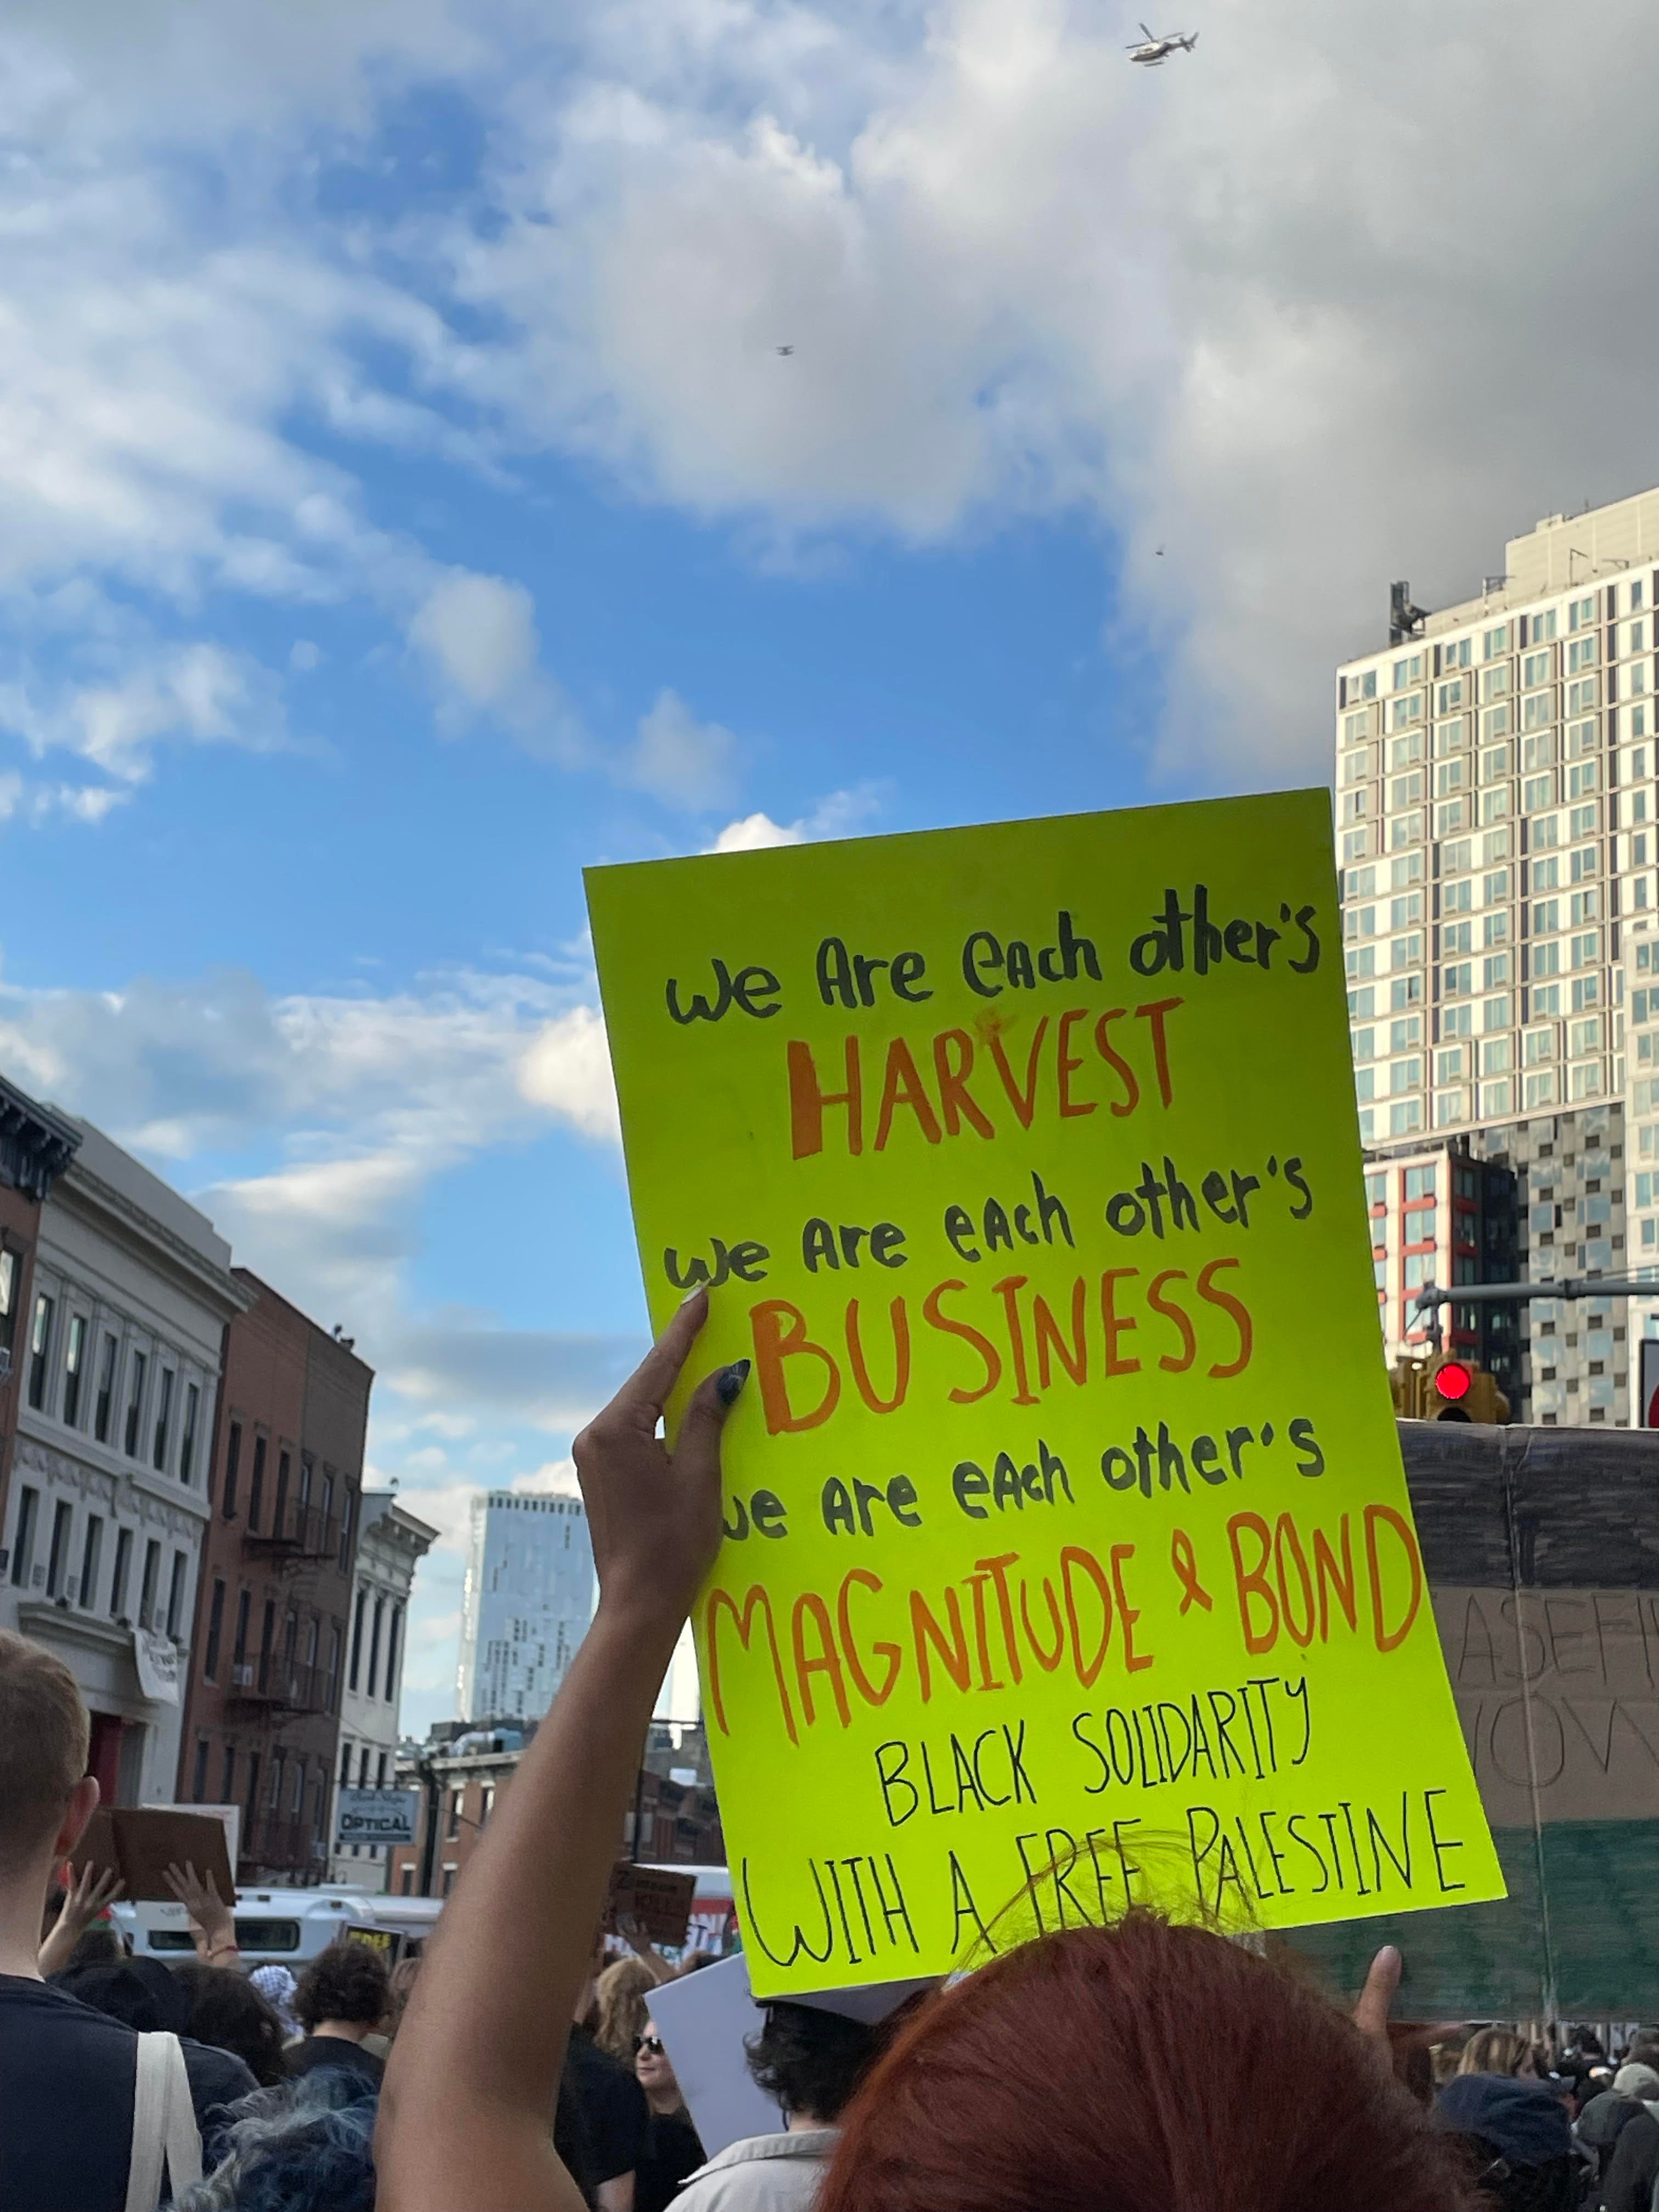 We Are each other's
HARVEST
We Are each other's
BUSINESS
We Are each other's
MAGNITUDE & BOND
BLACK SOLIDARITY
WITH A FREE PALESTINE
OPTICAL